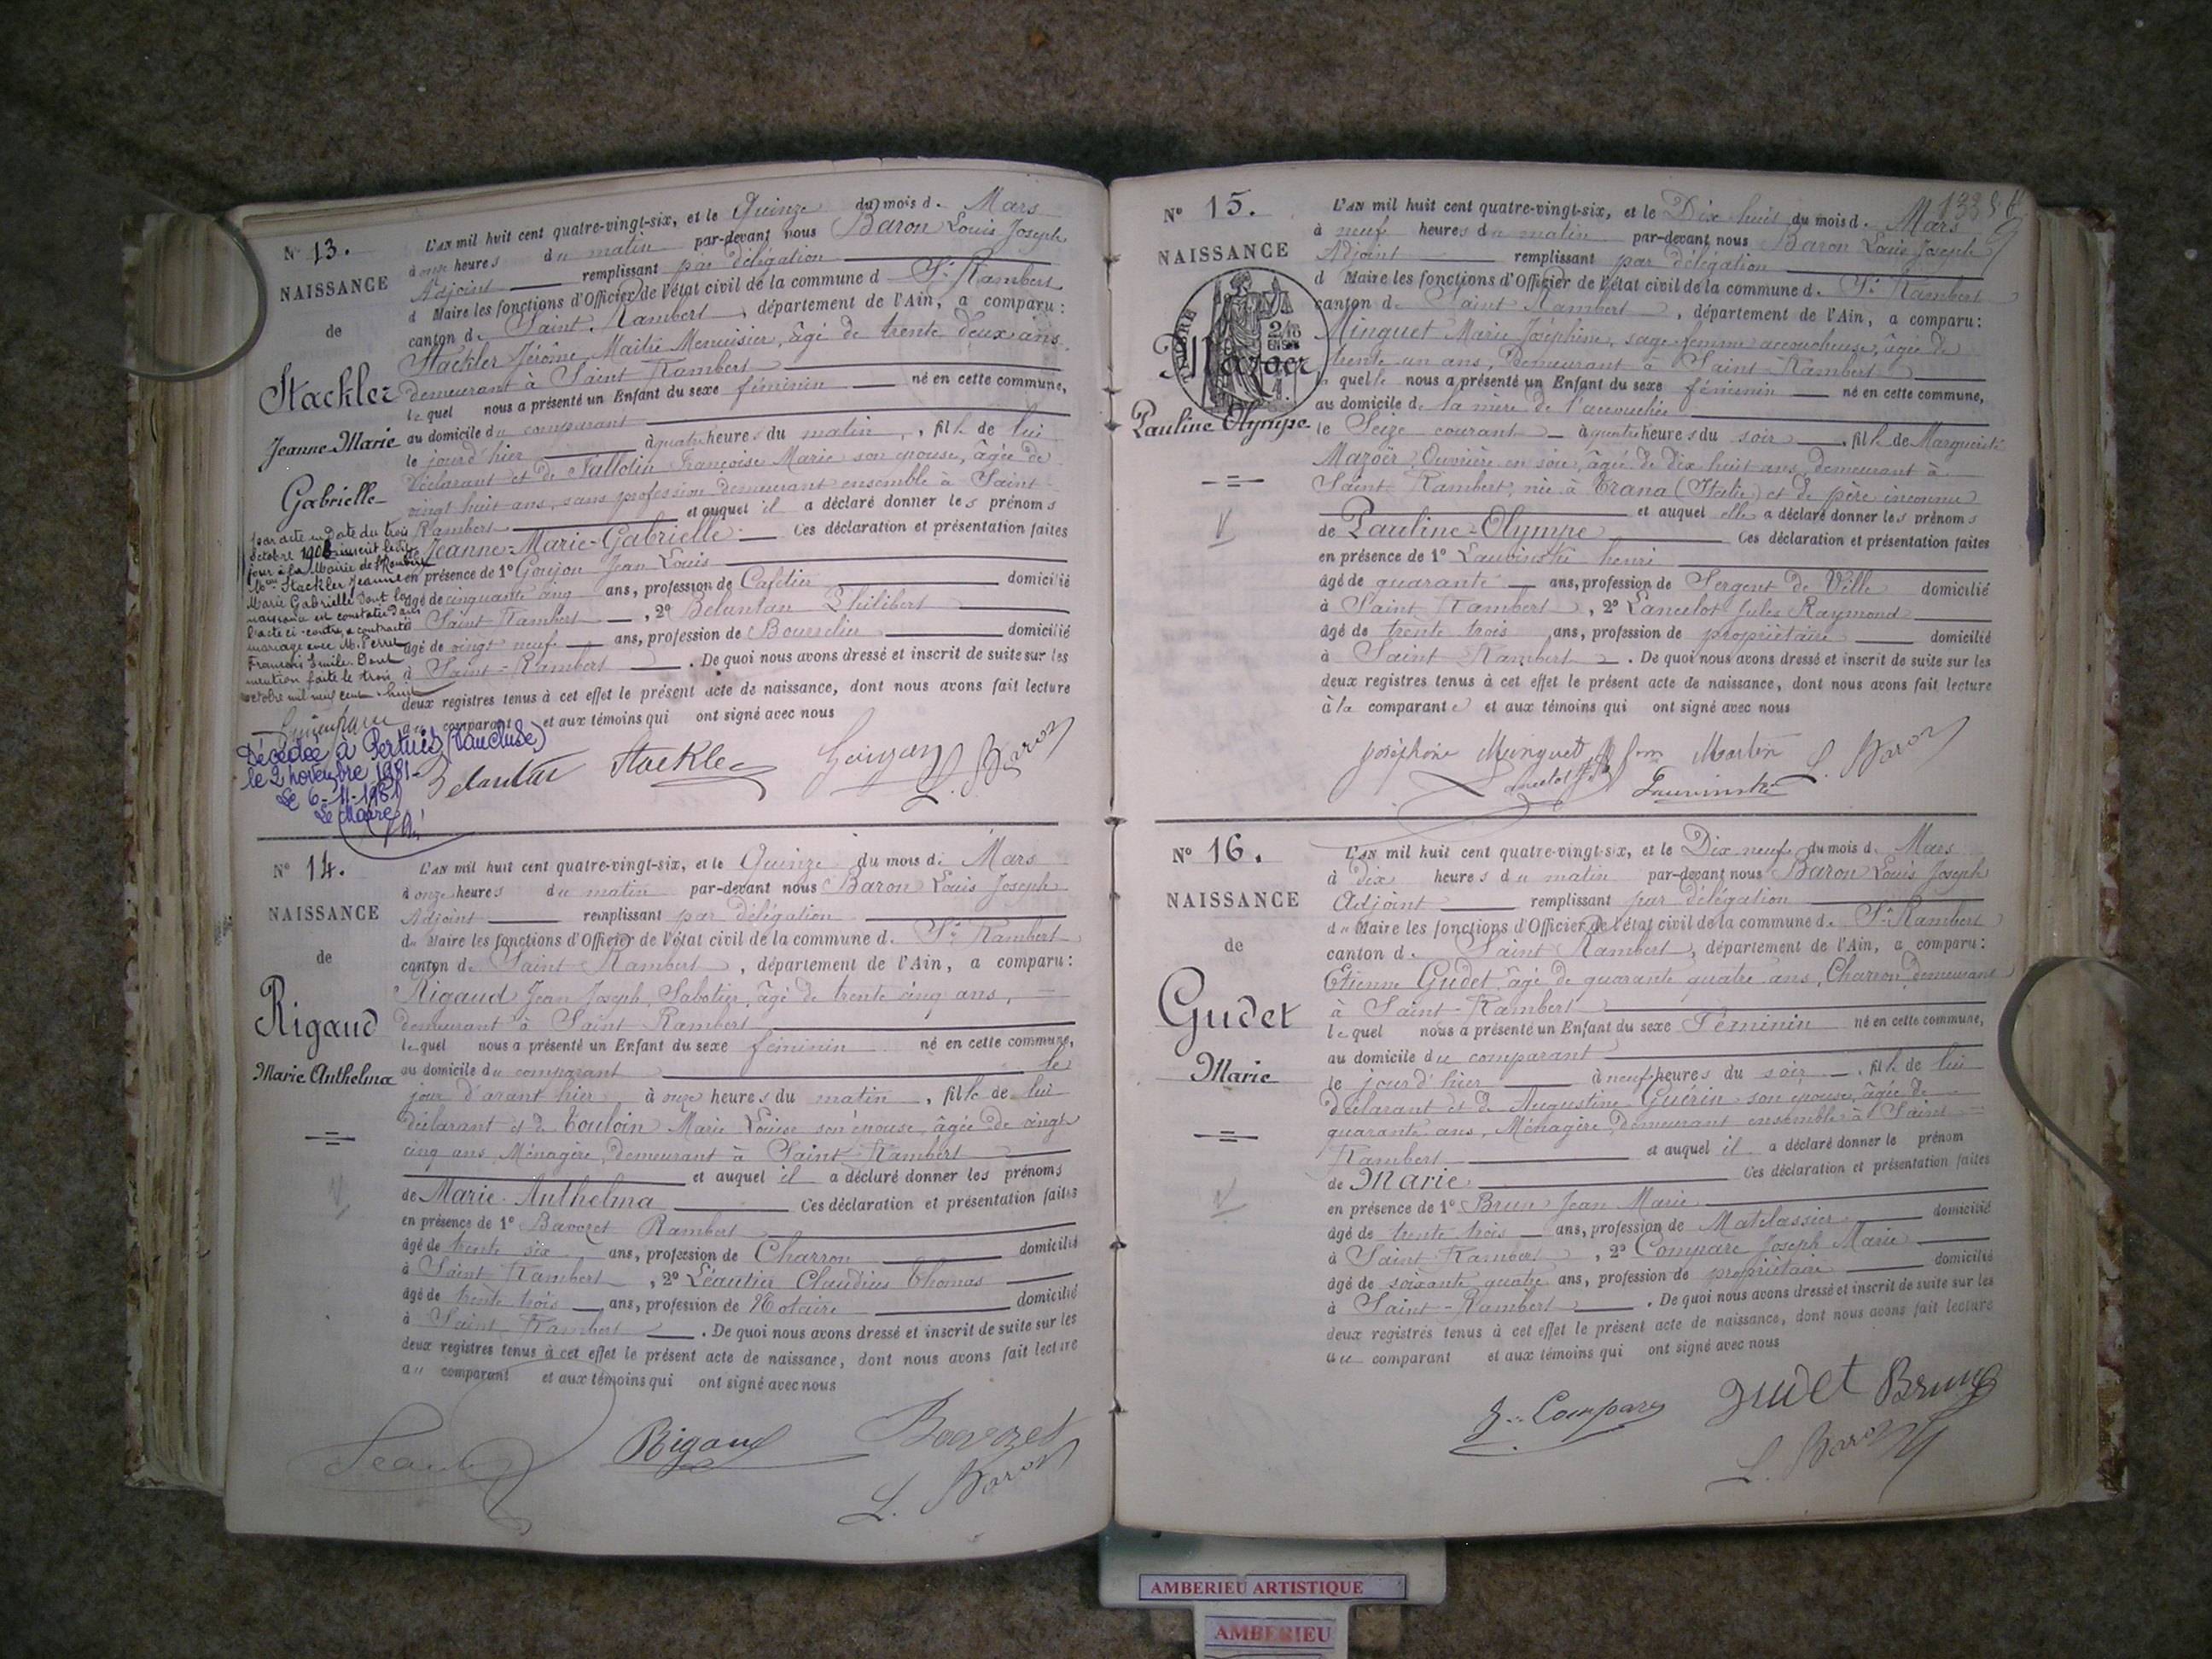 N° 13.
NAISSANCE
de
Stackler
Jeanne-Marie
Gabrielle
par acte en Date du trois
octobre 1908
jour à la Mairie de St Rambert
Stackler Jeanne
Marie Gabrielle Dont la
naissance est constatée dans
l'acte ci-contre a contracté
mariage avec M. Perret
François Emile. Dont
mention faite le trois
octobre mil neuf cent huit
Décédée à Pertuis (Vaucluse)
le 2 novembre 1981-
Le 6-11-1981
Le Maire
L'AN mil huit cent quatre-vingt-six, et le Quinze du mois d. Mars
à onze heures du matin par-devant nous Baron Louis Joseph
Adjoint remplissant par délégation
d Maire les fonctions d'Officier de l'état civil de la commune d St Rambert
canton d. Saint Rambert, département de l'Ain, a comparu:
Stackler Jérôme, Maître Menuisier, âgé de trente deux ans
demeurant à Saint Rambert
lequel nous a présenté un Enfant du sexe féminin né en cette commune,
au domicile du comparant
le jour d'hier à quatre heures du matin, fille de lui
déclarant et de Françoise Marie son épouse, âgée de
vingt huit ans, sans profession demeurant ensemble à Saint
Rambert et auquel il a déclaré donner les prénoms
de Jeanne-Marie-Gabrielle Ces déclaration et présentation faites
en présence de 1° Goujon Jean Louis
âgé de cinquante cinq ans, profession de Cafetier domicilié
à Saint Rambert, 2° Philibert
âgé de vingt neuf ans, profession de Bourrelier domicilié
à Saint-Rambert. De quoi nous avons dressé et inscrit de suite sur les
deux registres tenus à cet effet le présent acte de naissance, dont nous avons fait lecture
au comparant et aux témoins qui ont signé avec nous
Stackler Goujon
L. Baron
N° 14.
NAISSANCE
de
Rigaud
Marie Anthelma
L'AN mil huit cent quatre-vingt-six, et le Quinze du mois d. Mars
à onze heures du matin par-devant nous Baron Louis Joseph
Adjoint remplissant par délégation
du Maire les fonctions d'Officier de l'état civil de la commune d. St Rambert
canton d. Saint Rambert, département de l'Ain, a comparu:
Rigaud Jean Joseph, Sabotier, âgé de trente cinq ans,
demeurant à Saint Rambert
lequel nous a présenté un Enfant du sexe féminin né en cette commune,
au domicile du comparant le
jour d'avant hier à onze heures du matin, fille de lui
déclarant et de Touloin Marie Louise son épouse, âgée de vingt
cinq ans, Ménagère, demeurant à Saint Rambert
et auquel il a déclaré donner les prénoms
de Marie-Anthelma Ces déclaration et présentation faites
en présence de 1° Bavozet Rambert
âgé de trente six ans, profession de Charron domicilié
à Saint Rambert, 2° Léautier Claudius Thomas
âgé de trente trois ans, profession de Notaire domicilié
à Saint Rambert. De quoi nous avons dressé et inscrit de suite sur les
deux registres tenus à cet effet le présent acte de naissance, dont nous avons fait lecture
au comparant et aux témoins qui ont signé avec nous
Rigaud Bavozet
L. Baron
133
N° 15.
NAISSANCE
TIMBRE
Mazoer
Pauline Olympe
L'AN mil huit cent quatre-vingt-six, et le Dix huit du mois d. Mars
à neuf heures du matin par-devant nous Baron Louis Joseph
Adjoint remplissant par délégation
d Maire les fonctions d'Officier de l'état civil de la commune d. St Rambert
canton d. Saint Rambert, département de l'Ain, a comparu:
Minguet Marie Joséphine, sage femme accoucheuse, âgée de
trente un ans, Demeurant à Saint-Rambert
quelle nous a présenté un Enfant du sexe féminin né en cette commune,
au domicile de la mère de l'accouchée
le Seize courant à quatre heures du soir, fille de Marguerite
Mazoër, Ouvrière en soie, âgée de dix huit ans, demeurant à
Saint Rambert, née à Trana (Italie) et de père inconnu
et auquel elle a déclaré donner les prénoms
de Pauline-Olympe Ces déclaration et présentation faites
en présence de 1° Lauvinski henri
âgé de quarante ans, profession de Sergent de Ville domicilié
à Saint Rambert, 2° Lancelot Jules Raymond
âgé de trente trois ans, profession de propriétaire domicilié
à Saint Rambert. De quoi nous avons dressé et inscrit de suite sur les
deux registres tenus à cet effet le présent acte de naissance, dont nous avons fait lecture
à la comparante et aux témoins qui ont signé avec nous
Joséphine Minguet fem Martin
L. Baron
N° 16.
NAISSANCE
de
Gudet
Marie
L'AN mil huit cent quatre-vingt-six, et le Dix neuf du mois d. Mars
à dix heures du matin par-devant nous Baron Louis Joseph
Adjoint remplissant par délégation
du Maire les fonctions d'Officier de l'état civil de la commune d. St Rambert
canton d. Saint Rambert, département de l'Ain, a comparu:
Etienne Gudet, âgé de quarante quatre ans, Charron, demeurant
à Saint-Rambert
lequel nous a présenté un Enfant du sexe Féminin né en cette commune,
au domicile du comparant
le jour d'hier à neuf heures du soir, fille de lui
déclarant et de Augustine Guérin son épouse, âgée de
quarante ans, Ménagère, demeurant ensemble à Saint
Rambert et auquel il a déclaré donner le prénom
de Marie Ces déclaration et présentation faites
en présence de 1° Brun Jean Marie
âgé de trente trois ans, profession de Matelassier domicilié
à Saint Rambert, 2° Compare Joseph Marie
âgé de soixante quatre ans, profession de propriétaire domicilié
à Saint-Rambert. De quoi nous avons dressé et inscrit de suite sur les
deux registres tenus à cet effet le présent acte de naissance, dont nous avons fait lecture
au comparant et aux témoins qui ont signé avec nous
J. Compare Gudet Brun
L. Baron
AMBERIEU ARTISTIQUE
AMBERIEU